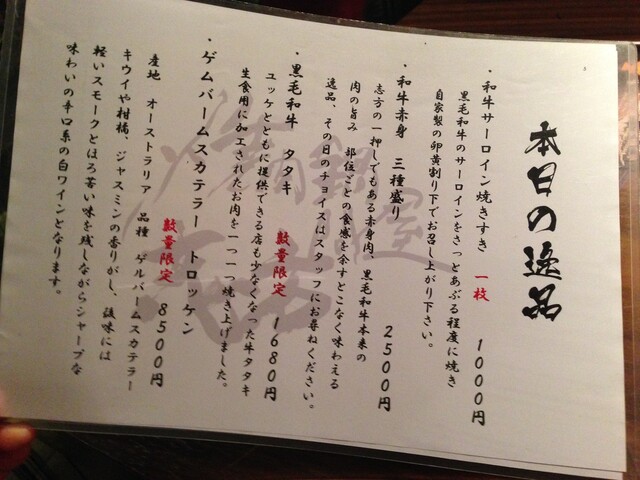 本日の逸品
・和牛サーロイン焼きすき 一枚 1000円
黒毛和牛のサーロインをさっとあぶる程度に焼き
自家製の卵黄割り下でお召し上がり下さい。
・和牛赤身 三種盛り 2500円
志方の一押しでもある赤身肉、黒毛和牛本来の
肉の旨み 部位ごとの食感を余すとこなく味わえる
逸品、その日のチョイスはスタッフにお尋ねください。
・黒毛和牛 タタキ 数量限定 1680円
ユッケとともに提供できる店も少なくなった牛タタキ
生食用に加工されたお肉を一つ一つ焼き上げました。
・ゲムバームスカテラー トロッケン
数量限定 8500円
産地 オーストラリア 品種 ゲルバームスカテラー
キウイや柑橘、ジャスミンの香りがし、後味には
軽いスモークとほろ苦い味を残しながらシャープな
味わいの辛口系の白ワインとなります。